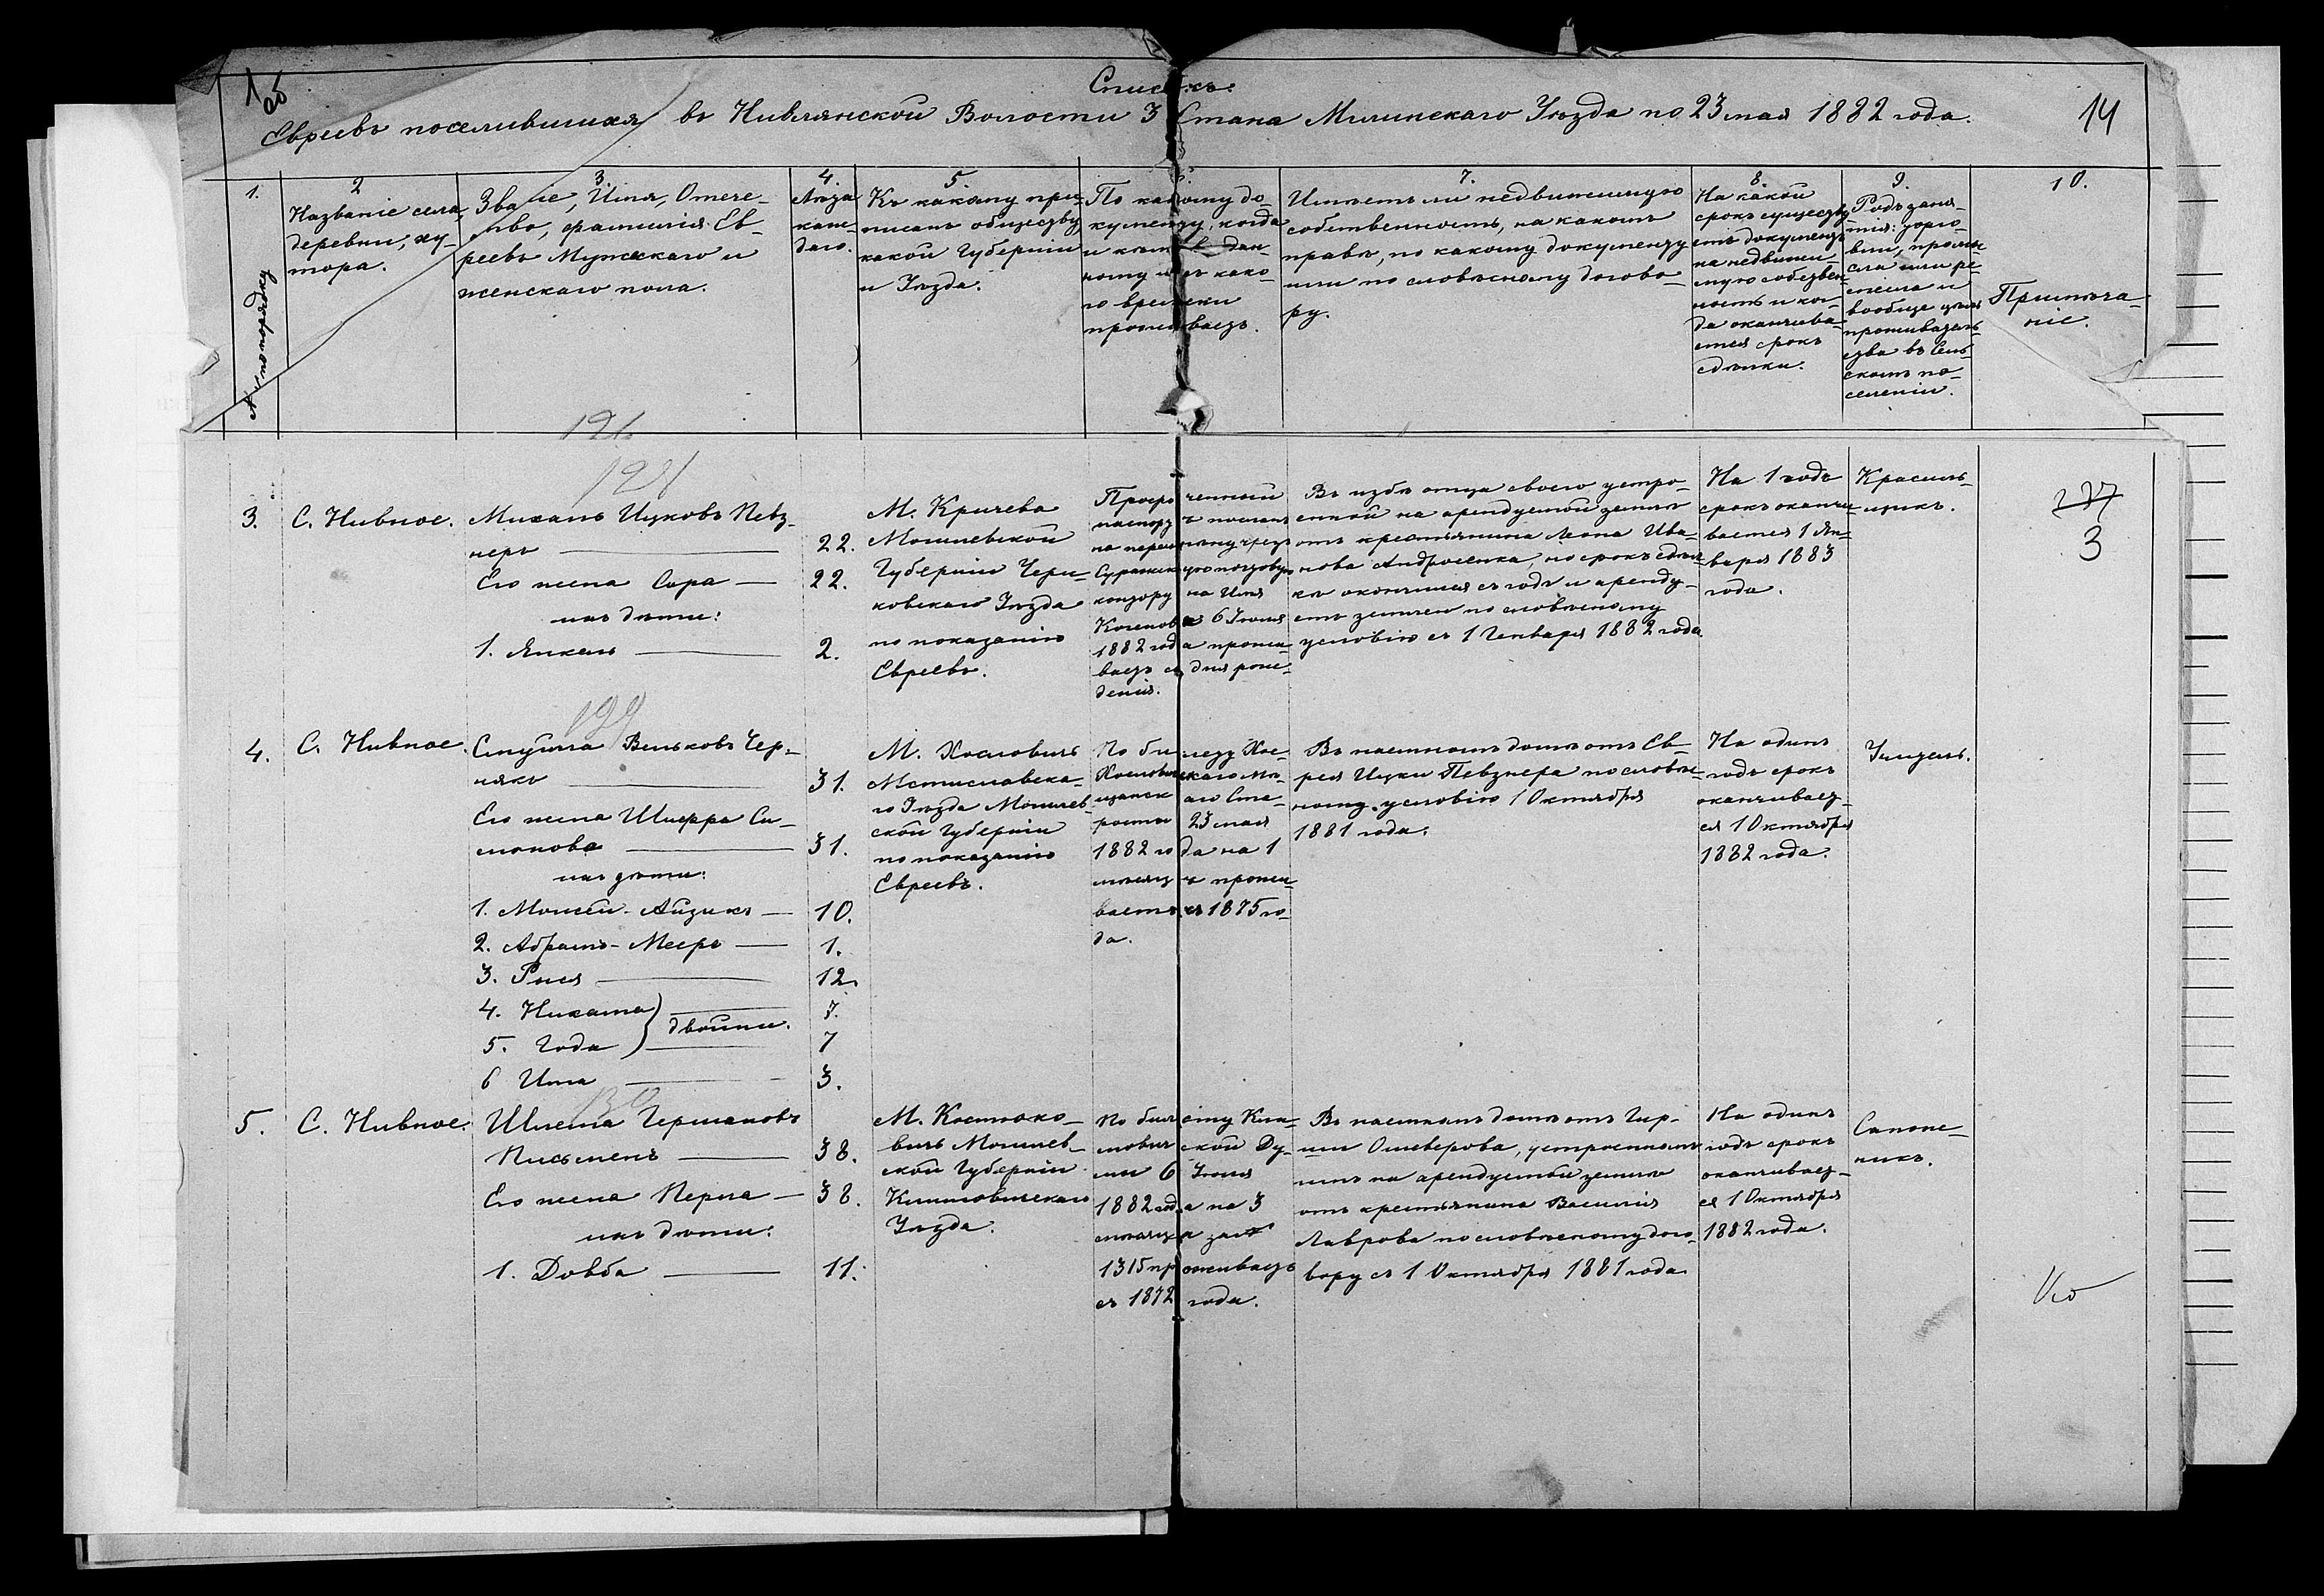 1 об
14
Списокъ
Евреевъ поселившихся въ Нивлянской Волости 3 Стана Мглинскаго Уѣзда по 23 мая 1882 года.
1.
№ по порядку
2
Названіе села,
деревни, ху-
тора.
3.
Званіе, Имя, Отече-
ство, фамилія Ев-
реевъ Мужскаго и
женскаго пола.
4.
Лѣта
каж-
даго.
5.
Къ какому при-
писанъ обществу,
какой Губерніи
и Уѣзда.
По какому до-
кументу, когда
и кѣмъ дан-
ному и съ како-
го времени
проживаетъ.
7.
Имѣетъ ли недвижимую
собственность, на какомъ
правѣ, по какому документу
или по словѣсному догово-
ру.
8.
На какой
срокъ существу-
етъ документъ
на недвижи-
мую собствен-
ность и ког-
да оканчива-
ется срокъ
сдѣлки.
9.
Родъ заня-
тія: торго-
вли, промы-
сла или ре-
месла и
вообще цѣль
проживатель-
ства въ Сель-
скомъ по-
селеніи.
10.
Примѣча-
ніе.
121
3.
С. Нивное.
Михаль Ицковъ Певз-
неръ
22.
Его жена Сора
22.
ихъ дѣти:
1. Янкель
2.
М. Кричева
Могилевской
Губерніи Чери-
ковскаго Уѣзда
по показанію
Евреевъ.
Просроченный
паспортъ посланъ
на перемѣну чрезъ
Суражскую почтовую
контору на Имя
6 Іюня
1882 года прожи-
ваетъ съ дня рож-
денія.
Въ избѣ отца своего устро-
енной на арендуемой землѣ
отъ крестьянина Леона Ива-
нова Андросенка, но срокъ сдѣл-
ки окончился съ годъ и аренду-
етъ землю по словѣсному
условію съ 1 Генваря 1882 года
На 1 годъ
срокъ оканчи-
вается 1 Ян-
варя 1883
года.
Красиль-
щикъ.
3
4.
С. Нивное.
Смуйла Вельковъ Чер-
някъ
31.
Его жена Шифра Си-
монова
31.
ихъ дѣти:
1. Мовшей-Айзикъ
10.
2. Абрамъ-Мееръ
1.
3. Рися
12.
4. Нихама
7.
двойни.
5. Года
7
6 Ита
3.
М. Хословичъ
Мстиславска-
го Уѣзда Могилев-
ской Губерніи
по показанію
Евреевъ.
По билету Хос-
Хословичскаго Мѣ-
щанскаго Ста-
росты 23 мая
1882 года на 1
мѣсяцъ прожи-
ваетъ съ 1875 го-
да.
Въ наемномъ домѣ отъ Ев-
рея Ицки Певзнера по словѣс-
ному условію 1 Октября
1881 года.
На одинъ
годъ срокъ
оканчивает-
ся 1 Октября
1882 года.
Учитель.
5.
С. Нивное.
Шлема Гершаковъ
Письменъ
38.
Его жена Перла
38.
ихъ дѣти:
1. Довба
11.
М. Костюко-
вичъ Могилев-
ской Губерніи
Климовичскаго
Уѣзда.
По билету Кли-
мовичской Ду-
мы 6 Іюня
1882 года на 3
мѣсяца за №
1315 проживаетъ
съ 1872 года.
Въ наемномъ домѣ отъ Гир-
ши Ошеверова, устроенномъ
имъ на арендуемой землѣ
отъ крестьянина Василія
Лаврова по словѣсному дого-
вору съ 1 Октября 1881 года
На одинъ
годъ срокъ
оканчивает-
ся 1 Октября
1882 года.
Сапож-
никъ.